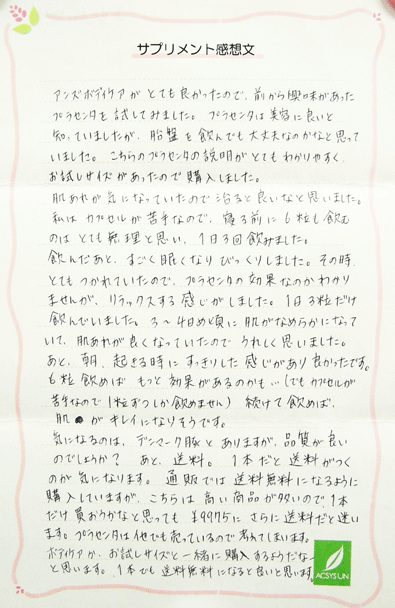 サプリメント感想文
アンズボディケアがとても良かったので、前から興味があった
プラセンタを試してみました。プラセンタは美容に良いと
知っていましたが、胎盤を飲んでも大丈夫なのかなと思って
いました。こちらのプラセンタの説明がとてもわかりやすく、
お試しサイズがあったので購入しました。
肌あれが気になっていたので治ると良いなと思いました。
私はカプセルが苦手なので、寝る前に6粒も飲む
のはとても無理と思い、1日3回飲みました。
飲んだあと、すごく眠くなりびっくりしました。その時、
とてもつかれていたので、プラセンタの効果なのかわかり
ませんが、リラックスする感じがしました。1日3粒だけ
飲んでいました。3〜4日め頃に肌がなめらかになって
いて、肌あれが良くなっていたのでうれしく思いました。
あと、朝、起きる時にすっきりした感じがあり良かったです。
6粒飲めばもっと効果があるのかも…(でもカプセルが
苦手なので1粒ずつしか飲めません) 続けて飲めば、
肌がキレイになりそうです。
気になるのは、デンマーク豚とありますが、品質が良い
のでしょうか? あと、送料。1本だと送料がつく
のが気になります。通販では送料無料になるように
購入していますが、こちらは高い商品が多いので、1本
だけ買おうかなと思っても ¥9975に さらに送料だと迷い
ます。プラセンタは他でも売っているので考えてしまいます。
ボディケアか、お試しサイズと一緒に購入するようだなー
と思います。1本でも送料無料になると良いと思います。
ACSYS UN